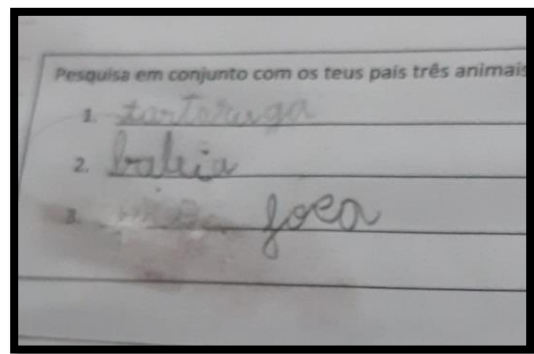 Pesquisa em conjunto com os teus pais três animais
1. tartaruga
2. baleia
3. foca